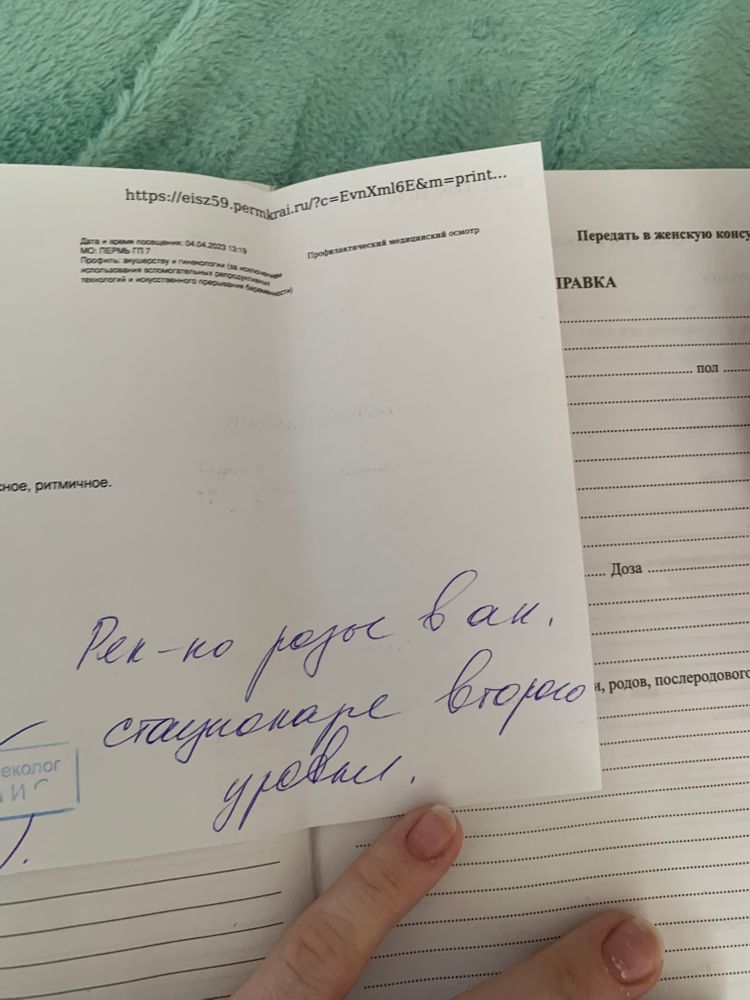 https://eisz59.permkrai.ru/?c=EvnXml6E&m=print...
Дата и время посещения: 04.04.2023 13:19
МО: ПЕРМЬ ГП 7
Профиль: акушерству и гинекологии (за исключением
использования вспомогательных репродуктивных
технологий и искусственного прерывания беременности)
Профилактический медицинский осмотр
сное, ритмичное.
Рек-но роды в ак.
стационаре второго
уровня.
еколог
Передать в женскую консу
ПРАВКА
пол
Доза
и, родов, послеродового